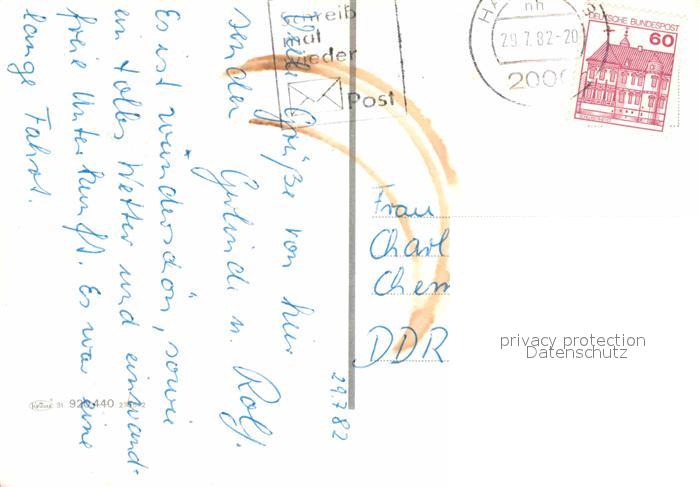 29.7.82
Viele Grüße von hier
senden Gerlinde u. Rolf.
Es ist wunderschön, sowie
ein tolles Wetter und einwand-
freie Unterkunft. Es war eine
lange Fahrt.
schreib
mal
wieder
Post
29.7.82-20
2000
DEUTSCHE BUNDESPOST
60
Frau
Charl
Chem
DDR
privacy protection
Datenschutz
Krüger 31. 920 440